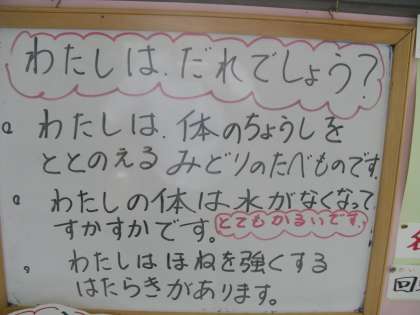 わたしは、だれでしょう？
。わたしは、体のちょうしを
ととのえるみどりのたべものです。
。わたしの体は水がなくなって
すかすかです。とてもかるいです。
。わたしはほねを強くする
はたらきがあります。
回